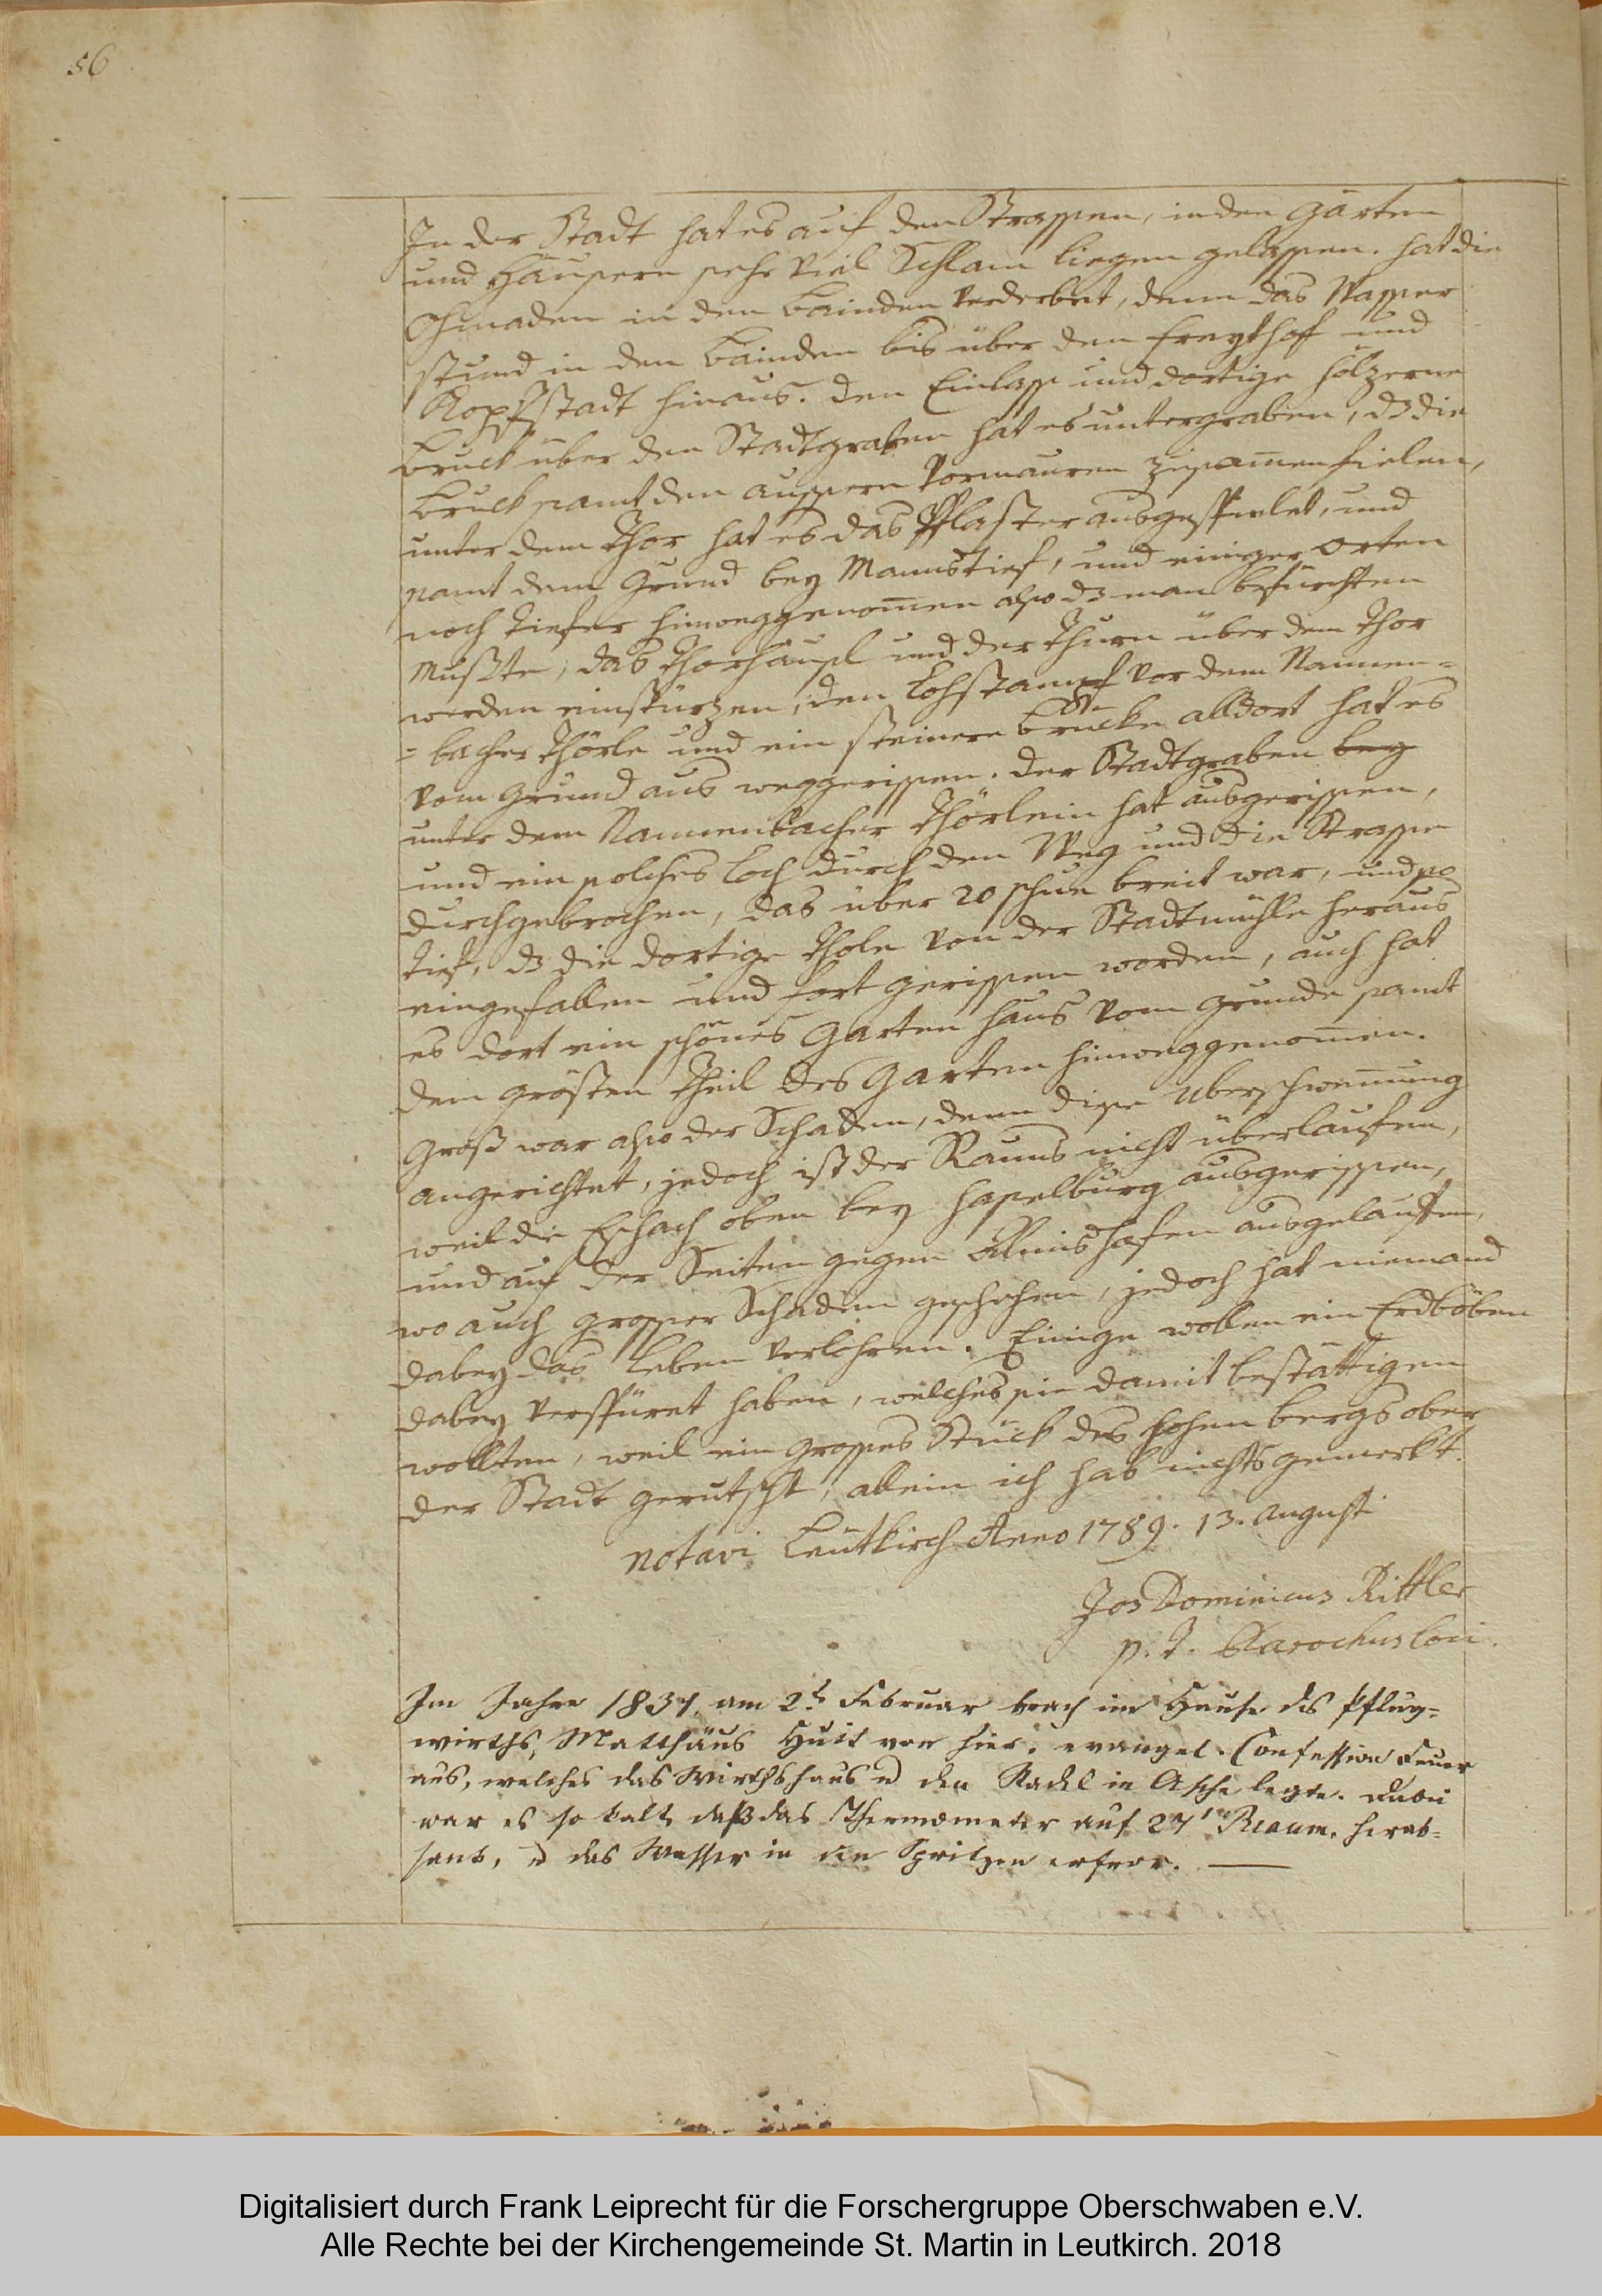 56
In der Stadt hat es auf den Strassen, in den Gärten
und Häusern sehr viel Schlam liegen gelassen. hat die
Ohmaden in den Bainden verderbet, denn das Wasser
stund in den Bainden bis über den Freythoff und
Roßstadt hinaus. den Einlass und dortige hölzerne
Bruck über den Stadtgraben hat es untergraben, dz die
Bruck samt den aussern Vormauren zusam̄en fielen,
unter dem Thor hat es das Pflaster ausgespielet, und
samt dem Grund bey Mannstief, und einiger orten
noch tiefer hinweggenom̄en also dz man befürchten
mußte, das Thorhäusl und der Thurn über dem Thor
werden einstürzen, den Lohstampf vor dem Nannen=
=bacher Thörle und ein steinere brucke alldort hat es
vom Grund aus weggerissen. der Stadtgraben bey
unter dem Nannenbacher Thörlein hat ausgerissen,
und ein solches Loch durch den Weg und die Strasse
durchgebrochen, das über 20 schue breit war, und so
tief, dz die dortige Thole von der Stadtmühle heraus
eingefallen und fort gerissen worden, auch hat
es dort ein schönes Garten haus vom Grunde samt
dem grösten Theil des Garten hinweggenom̄en.
Groß war also der Schaden, denn dise Uberschwem̄ung
angerichtet, jedoch ist der Rauns nicht überlaufen,
weil die Eschach oben bey Haselburg ausgerissen,
und auf der Seiten gegen Allmishofen ausgelauffen,
wo auch grosser Schaden geschehen, jedoch hat niemand
dabey das Leben verlohren. Einige wollen ein Erdböben
dabey verspüret haben, welches sie damit bestättigen
wollten, weil ein grosses Stuck des hohen bergs ober
der Stadt gerutscht, allein ich hab nichts gemerkt.
notavi Leutkirch Anno 1789. 13. Augusti
Jos Dominicus Rittler
p. t. Parochus loci.
Im Jahre 1837, am 2t Februar brach im Hause des Pflug=
wirths, Matthäus Huit von hier, evangel. Confession Feuer
aus, welches das Wirthshaus u den Stadel in Asche legte. Dabei
war es so kalt, daß das Thermometer auf 27° Reaum. herab=
sank, u das Wasser in den Spritzen erfror.
Digitalisiert durch Frank Leiprecht für die Forschergruppe Oberschwaben e.V.
Alle Rechte bei der Kirchengemeinde St. Martin in Leutkirch. 2018